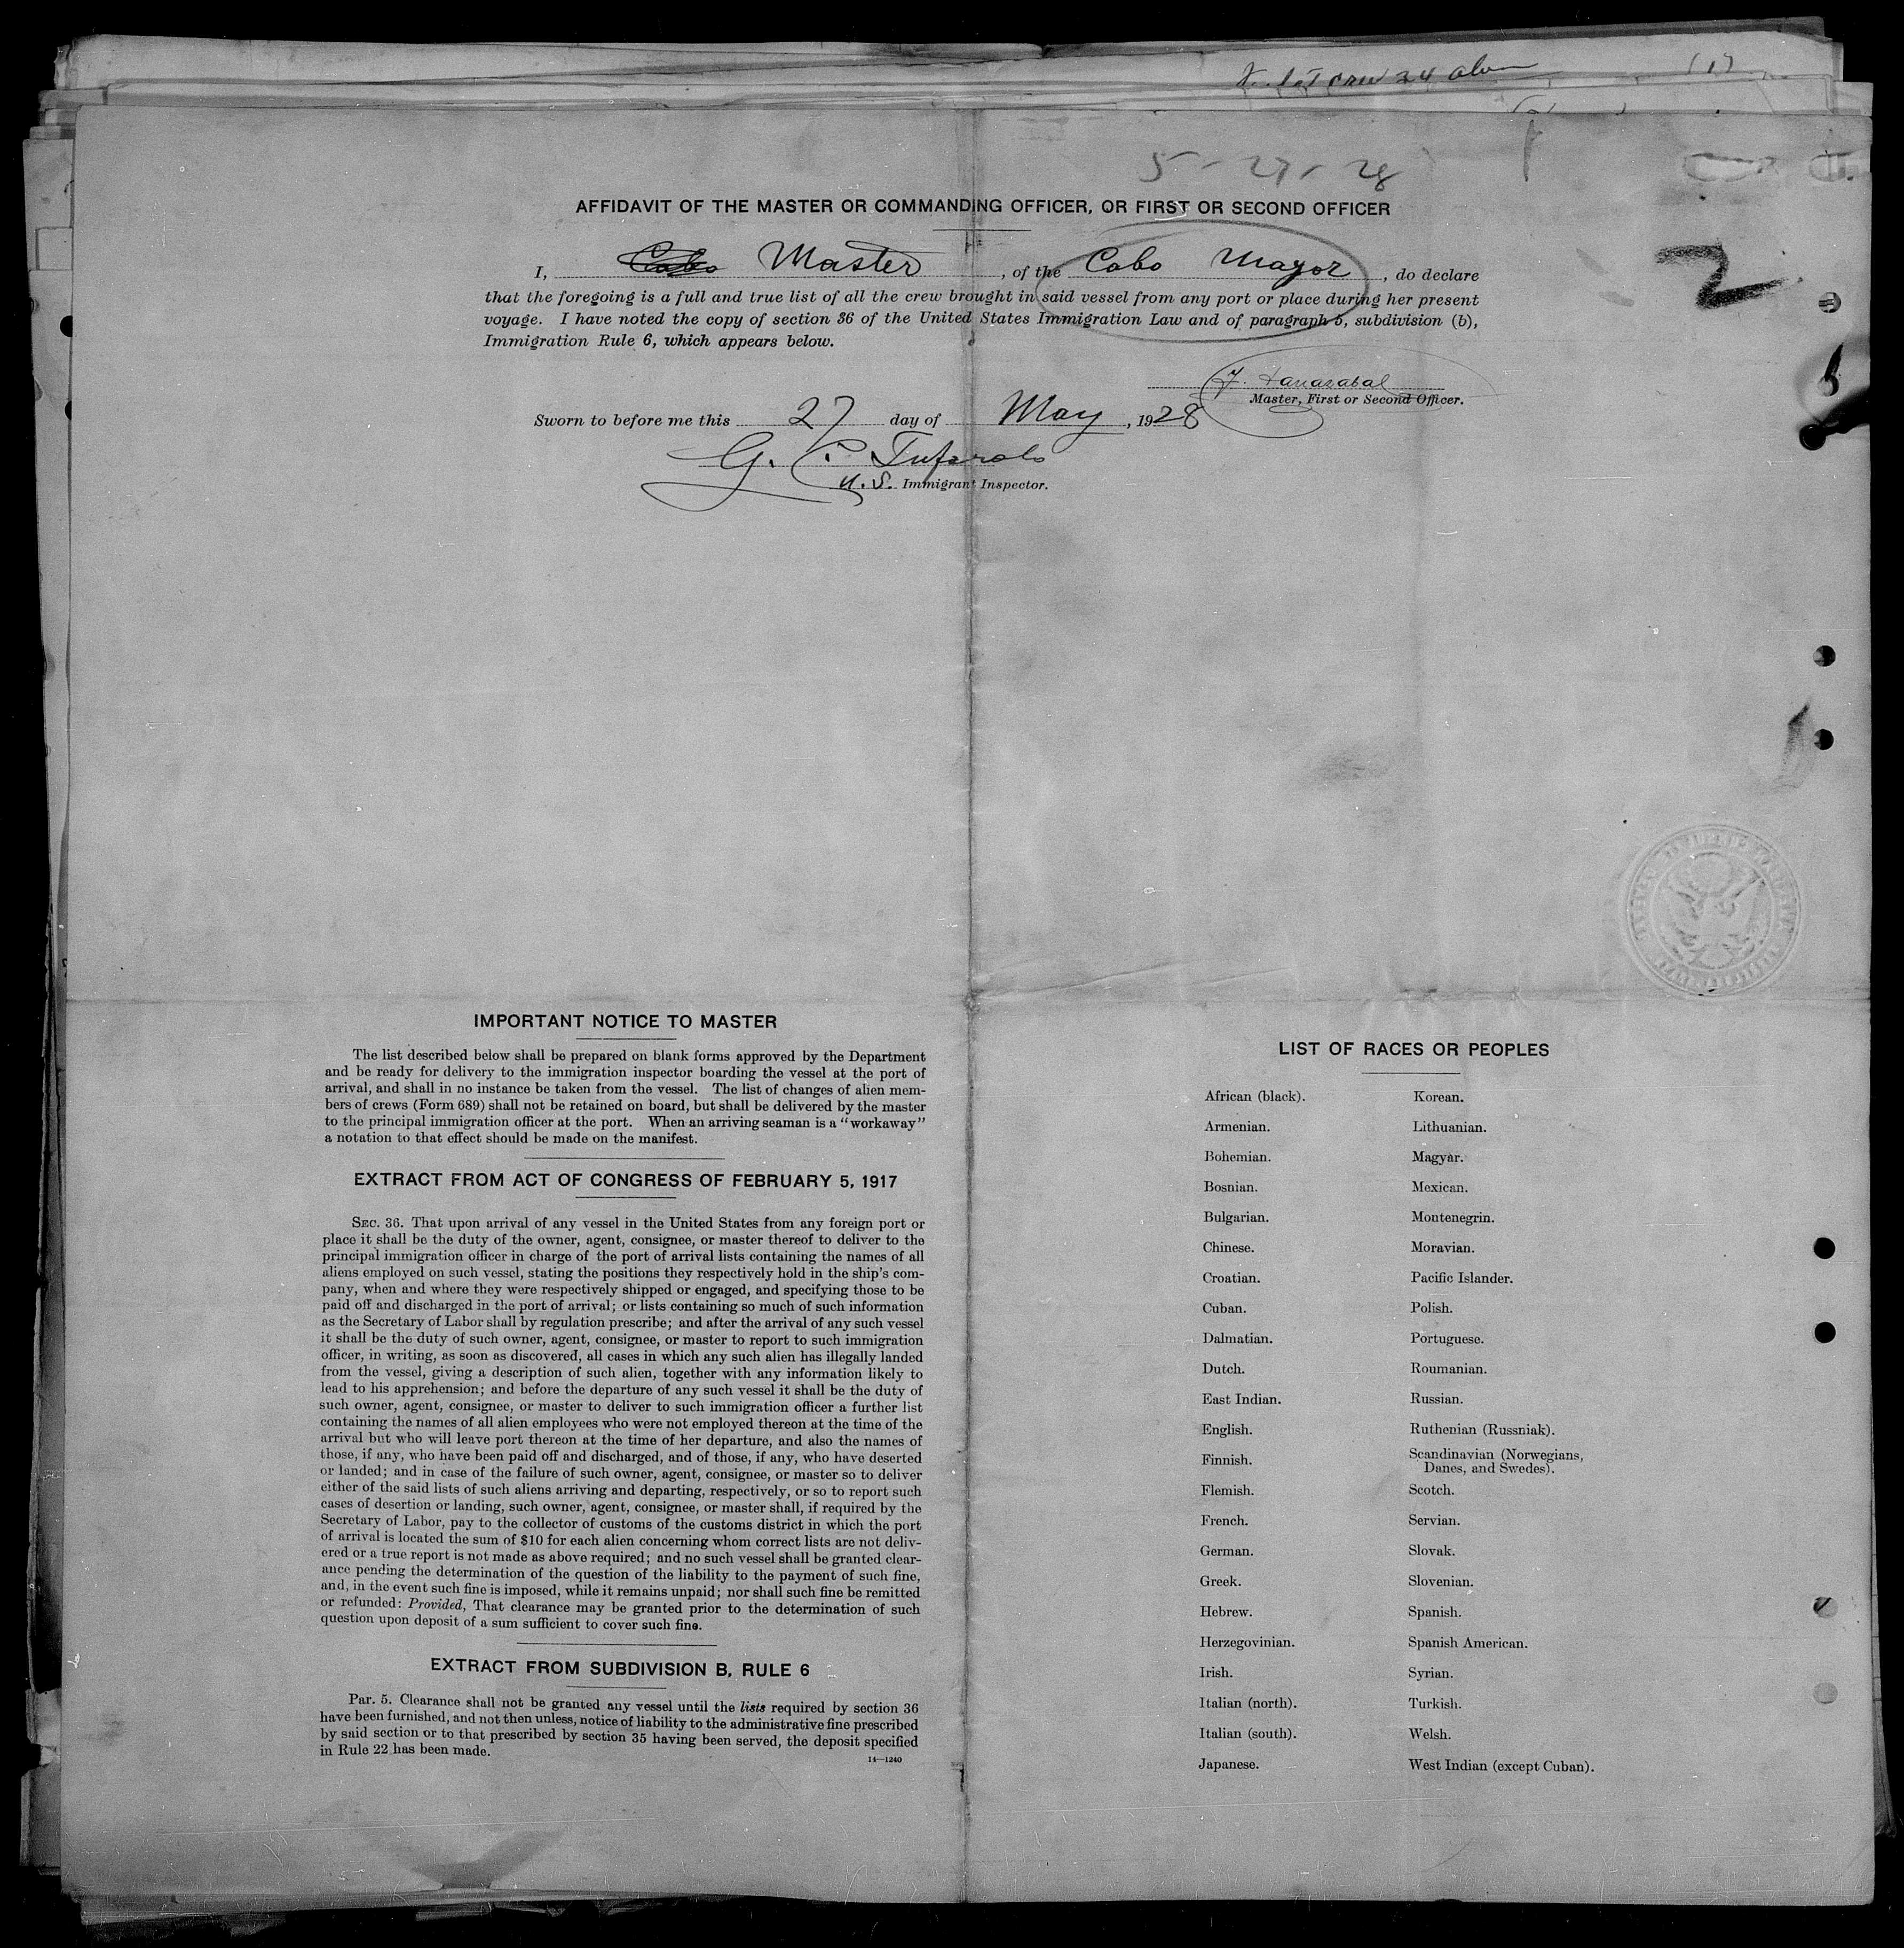 5-27-28
AFFIDAVIT OF THE MASTER OR COMMANDING OFFICER, OR FIRST OR SECOND OFFICER
I, Cabo Master, of the Cabo Mayor, do declare
that the foregoing is a full and true list of all the crew brought in said vessel from any port or place during her present
voyage. I have noted the copy of section 36 of the United States Immigration Law and of paragraph 5, subdivision (b),
Immigration Rule 6, which appears below.
2
Master, First or Second Officer.
Sworn to before me this 27 day of May, 1928
G. P.
U. S. Immigrant Inspector.
IMPORTANT NOTICE TO MASTER
The list described below shall be prepared on blank forms approved by the Department
and be ready for delivery to the immigration inspector boarding the vessel at the port of
arrival, and shall in no instance be taken from the vessel. The list of changes of alien mem-
bers of crews (Form 689) shall not be retained on board, but shall be delivered by the master
to the principal immigration officer at the port. When an arriving seaman is a "workaway"
a notation to that effect should be made on the manifest.
EXTRACT FROM ACT OF CONGRESS OF FEBRUARY 5, 1917
SEC. 36. That upon arrival of any vessel in the United States from any foreign port or
place it shall be the duty of the owner, agent, consignee, or master thereof to deliver to the
principal immigration officer in charge of the port of arrival lists containing the names of all
aliens employed on such vessel, stating the positions they respectively hold in the ship's com-
pany, when and where they were respectively shipped or engaged, and specifying those to be
paid off and discharged in the port of arrival; or lists containing so much of such information
as the Secretary of Labor shall by regulation prescribe; and after the arrival of any such vessel
it shall be the duty of such owner, agent, consignee, or master to report to such immigration
officer, in writing, as soon as discovered, all cases in which any such alien has illegally landed
from the vessel, giving a description of such alien, together with any information likely to
lead to his apprehension; and before the departure of any such vessel it shall be the duty of
such owner, agent, consignee, or master to deliver to such immigration officer a further list
containing the names of all alien employees who were not employed thereon at the time of the
arrival but who will leave port thereon at the time of her departure, and also the names of
those, if any, who have been paid off and discharged, and of those, if any, who have deserted
or landed; and in case of the failure of such owner, agent, consignee, or master so to deliver
either of the said lists of such aliens arriving and departing, respectively, or so to report such
cases of desertion or landing, such owner, agent, consignee, or master shall, if required by the
Secretary of Labor, pay to the collector of customs of the customs district in which the port
of arrival is located the sum of $10 for each alien concerning whom correct lists are not deliv-
ered or a true report is not made as above required; and no such vessel shall be granted clear-
ance pending the determination of the question of the liability to the payment of such fine,
and, in the event such fine is imposed, while it remains unpaid; nor shall such fine be remitted
or refunded: Provided, That clearance may be granted prior to the determination of such
question upon deposit of a sum sufficient to cover such fine.
EXTRACT FROM SUBDIVISION B, RULE 6
Par. 5. Clearance shall not be granted any vessel until the lists required by section 36
have been furnished, and not then unless, notice of liability to the administrative fine prescribed
by said section or to that prescribed by section 35 having been served, the deposit specified
in Rule 22 has been made.
14—1240
LIST OF RACES OR PEOPLES
African (black).
Armenian.
Bohemian.
Bosnian.
Bulgarian.
Chinese.
Croatian.
Cuban.
Dalmatian.
Dutch.
East Indian.
English.
Finnish.
Flemish.
French.
German.
Greek.
Hebrew.
Herzegovinian.
Irish.
Italian (north).
Italian (south).
Japanese.
Korean.
Lithuanian.
Magyar.
Mexican.
Montenegrin.
Moravian.
Pacific Islander.
Polish.
Portuguese.
Roumanian.
Russian.
Ruthenian (Russniak).
Scandinavian (Norwegians,
Danes, and Swedes).
Scotch.
Servian.
Slovak.
Slovenian.
Spanish.
Spanish American.
Syrian.
Turkish.
Welsh.
West Indian (except Cuban).